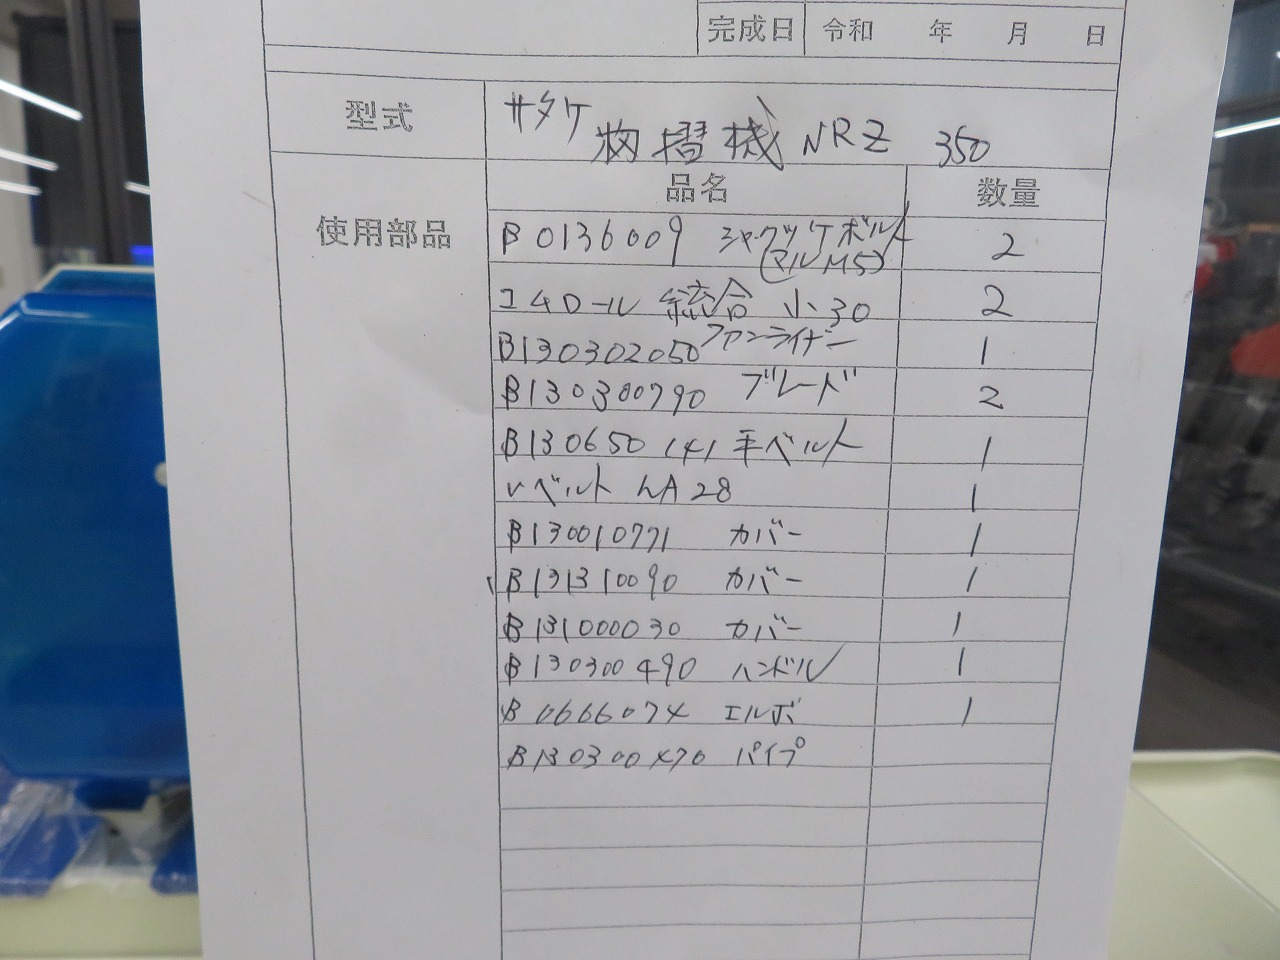 完成日 令和 年 月 日
型式 サタケ 籾摺機 NRZ 350
使用部品 品名 数量
B0136009 シャクリケボルト 2
(マルM5)
ゴムロール 統合 小30 2
B130302050 ファンライナー 1
B130300790 ブレード 2
B130650141 平ベルト 1
Vベルト LA28 1
B130010771 カバー 1
B131310090 カバー 1
B131000030 カバー 1
B130300490 ハンドル 1
B0666074 エルボ 1
B130300470 パイプ